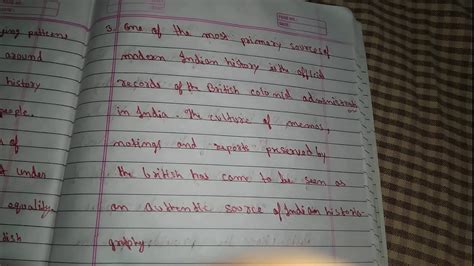 ying patterns
around
history
people.
of
under
equality
dish
3. One of the most primary sources of
modern Indian history is the official
records of the British colonial administrats
in India. The culture of memos,
notings and reports preserved by
the british has come to be seen as
an authentic source of Indian historio
graphy